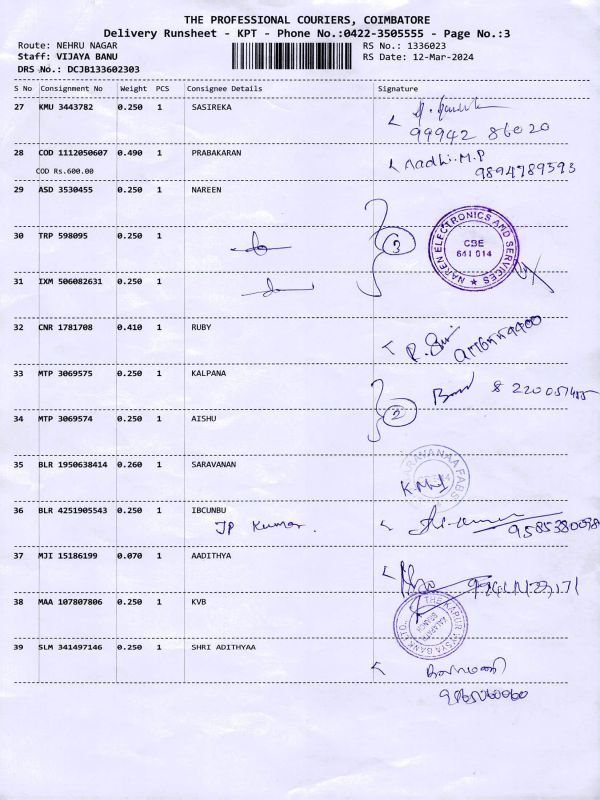 THE PROFESSIONAL COURIERS, COIMBATORE
Delivery Runsheet - KPT - Phone No.:0422-3505555 - Page No.:3
Route: NEHRU NAGAR RS No.: 1336023
Staff: VIJAYA BANU RS Date: 12-Mar-2024
DRS No.: DCJB133602303
S No Consignment No Weight PCS Consignee Details Signature
27 KMU 3443782 0.250 1 SASIREKA
99942 86020
28 COD 1112050607 0.490 1 PRABAKARAN Aadhi.M.P
COD Rs.600.00 9894789593
29 ASD 3530455 0.250 1 NAREEN
NAREN ELECTRONICS AND SERVICES
30 TRP 598095 0.250 1 3 CBE
641 014
31 IXM 506082631 0.250 1
32 CNR 1781708 0.410 1 RUBY
33 MTP 3069575 0.250 1 KALPANA
2
34 MTP 3069574 0.250 1 AISHU
35 BLR 1950638414 0.260 1 SARAVANAN
SARAVANAA FABS
36 BLR 4251905543 0.250 1 IBCUNBU
JP Kumar. 9585380098
37 MJI 15186199 0.070 1 AADITHYA
38 MAA 107807806 0.250 1 KVB
THE KARUR VYSYA BANK LTD.
BRANCH
39 SLM 341497146 0.250 1 SHRI ADITHYAA